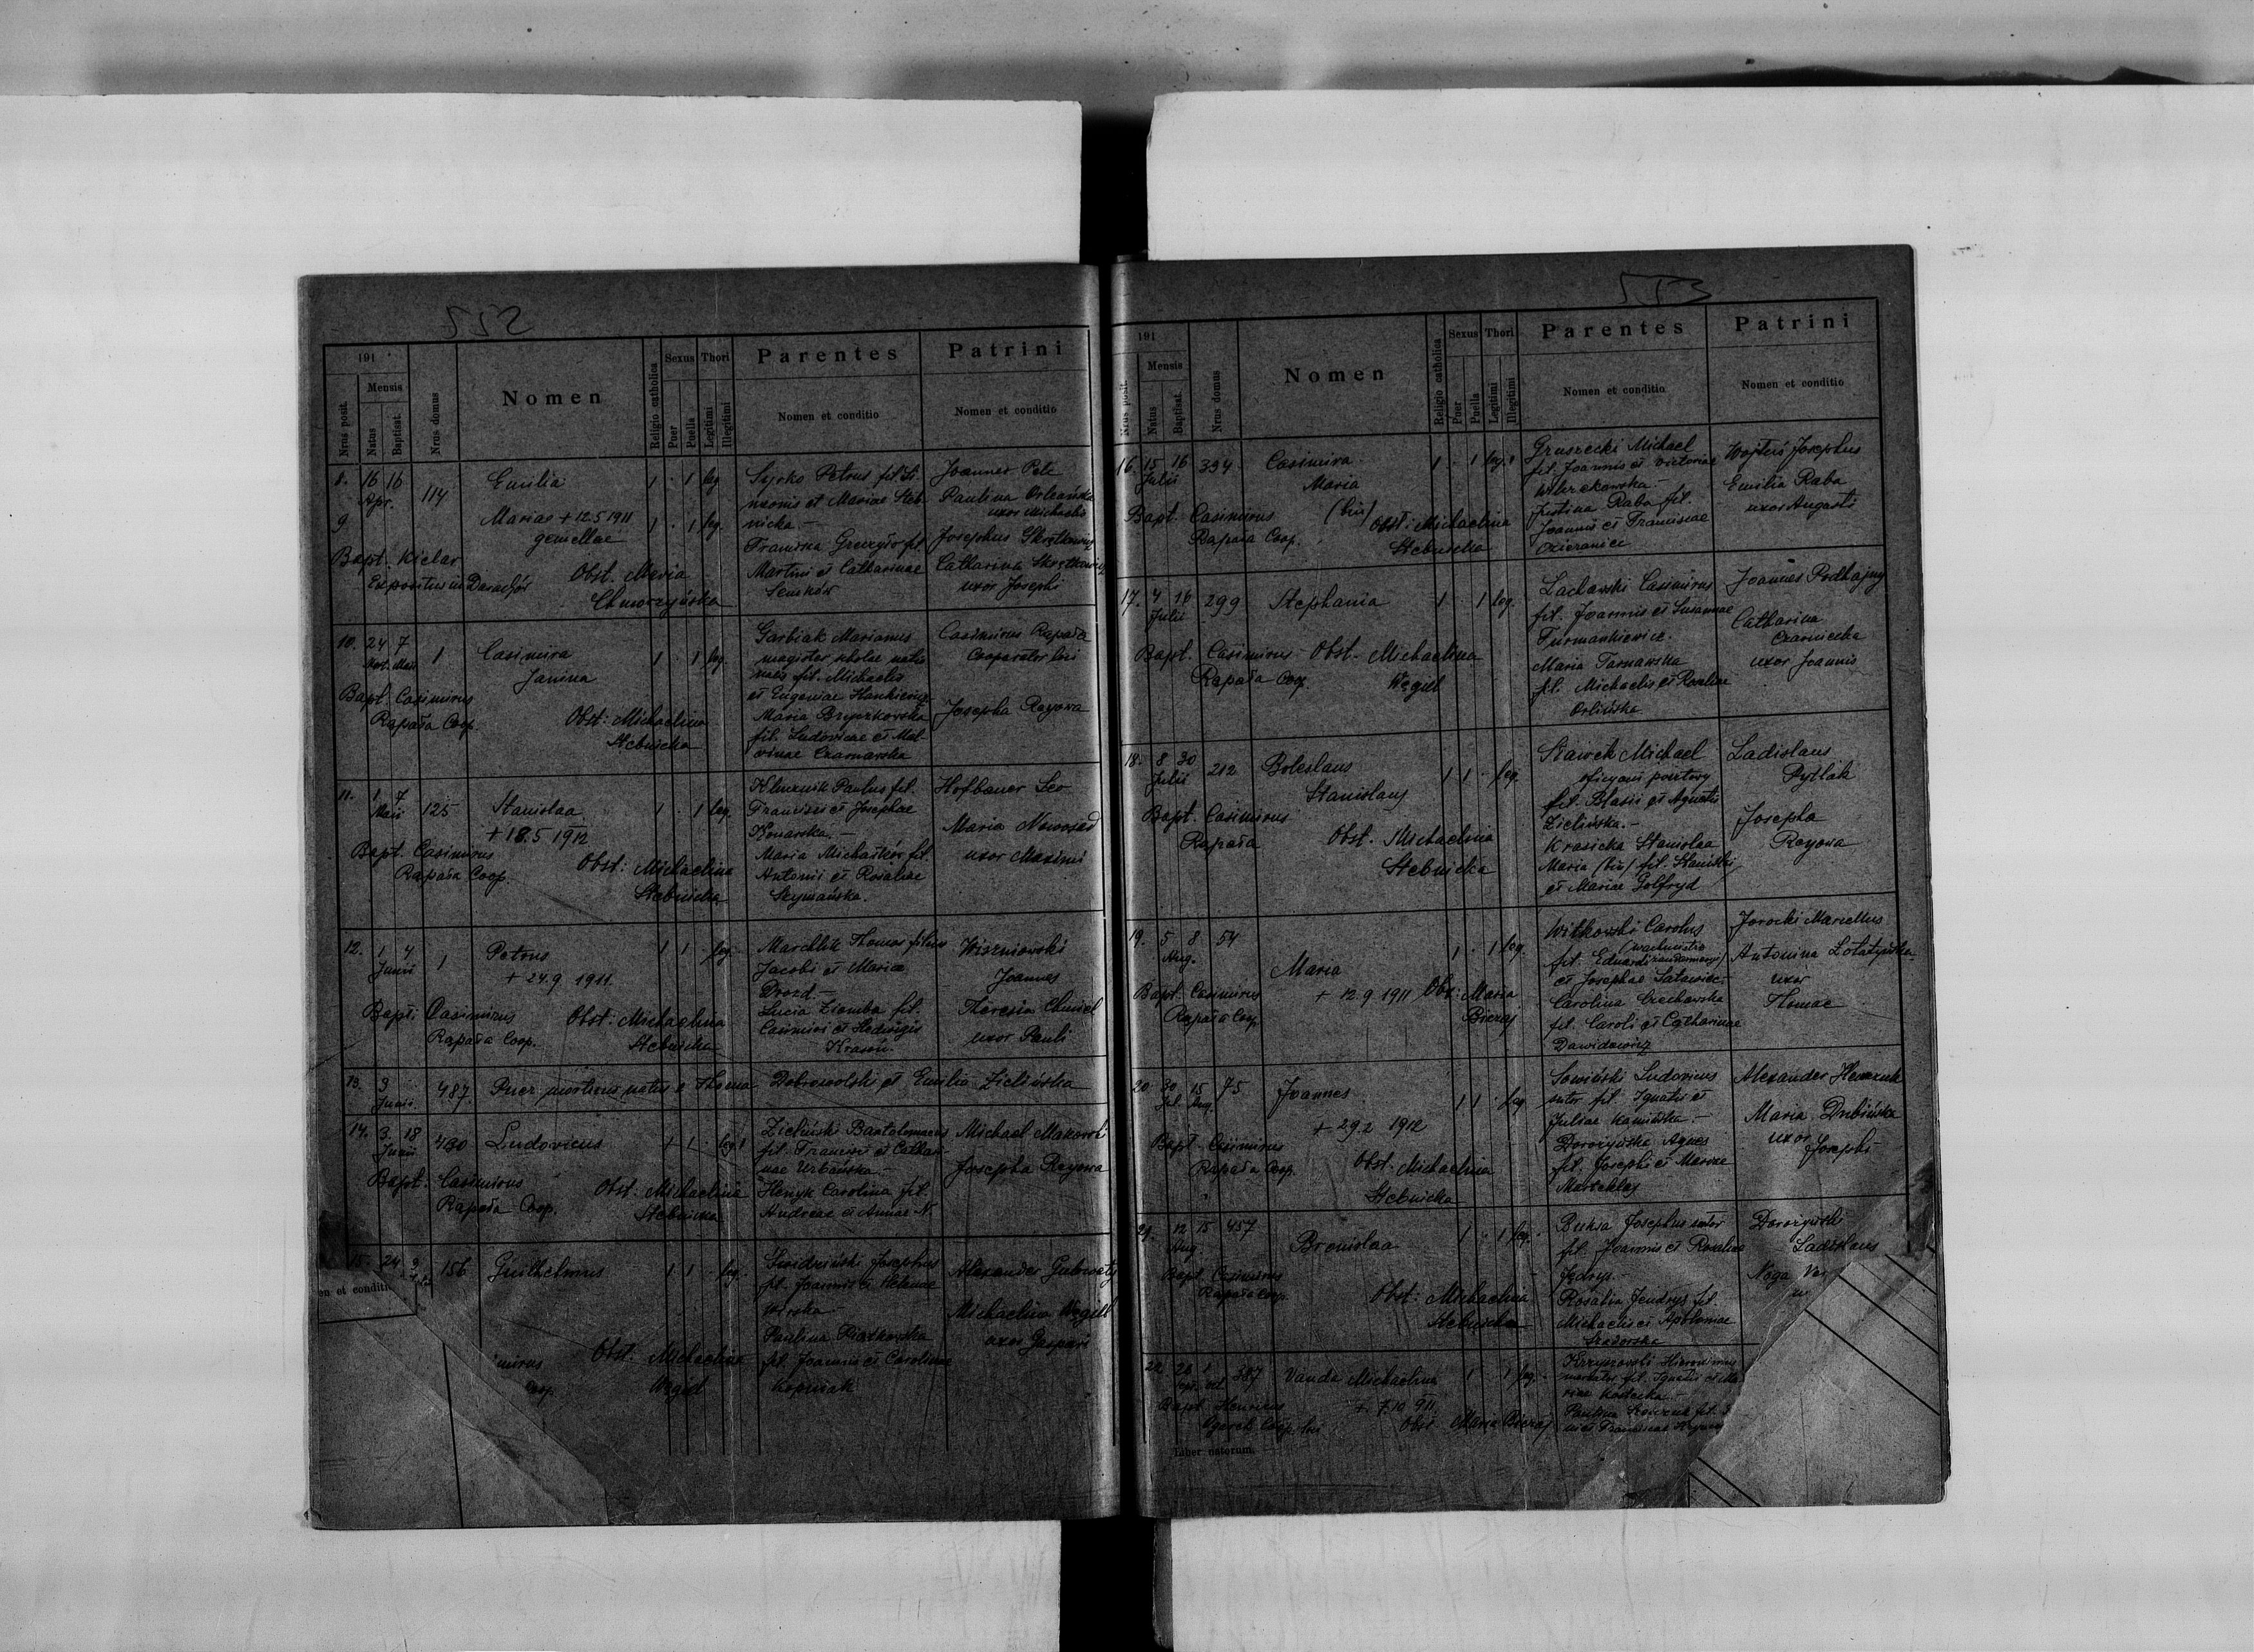 552
191
Nrus posit.
Mensis
Natus
Baptisat.
Nrus domus
Nomen
Religio catholica
Sexus
Puer
Puella
Thori
Legitimi
Illegitimi
Parentes
Nomen et conditio
Patrini
Nomen et conditio
8. 16 16 Apr. 114
Emilia
1 · 1 leg.
9
Marias + 12.5 1911
gemellae
1 · 1 leg.
Bapt. Kielar
Expositus in Darachów
Obst. Maria
Chmorzyńska
Syrko Petrus fil. Si
meonis et Mariae Steb
nicka —
Franciska Gruzyło fil.
Martini et Catharinae
Senków
Joannes Pele
Paulina Orleańska
uxor Michaelis
Josephus Skrętkowicz
Catharina Skrętkowicz
uxor Josephi
10. 24 7
Mart. Maii
1
Casimira
Janina
1 · 1 leg.
Bapt. Casimirus
Rapała Coop.
Obst: Michaelina
Stebnicka
Garbiak Marianus
magister scholae
fil. Michaelis
et Eugeniae Hankiewicz
Maria Bryczkowska
fil. Ludovicae et Mal
vinae Czarnawska
Casimirus Rapała
Cooperator loci
Josepha Reyowa
11. 1 7
Maii
125
Stanislaa
+ 18.5 1912
1 · 1 leg.
Bapt. Casimirus
Rapała Coop.
Obst: Michaelina
Stebnicka
Klucznik Paulus fil.
Francisci et Josephae
Konarska. —
Maria Michałków fil.
Antonii et Rosaliae
Szymańska.
Hofbauer Leo
Maria Nowosad
uxor Maximi
12. 1 4
Junii
1
Petrus
+ 24.9 1911.
1 1 · leg.
Bapt: Casimirus
Rapała Coop.
Obst: Michaelina
Stebnicka
Marchlik Thomas filius
Jacobi et Mariae
Drozd —
Lucia Ziemba fil.
Casimiri et Hedwigis
Krasoń.
Wiszniowski
Joannes
Theresia Chmiel
uxor Pauli
13. 3
Junii
487. Puer mortuus natus e Thoma Dobrowolski et Emilia Zielińska
14. 3. 18
Junii
430 Ludovicus
1 1 · leg.
Bapt. Casimirus
Rapała Coop.
Obst. Michaelina
Stebnicka
Zieliński Bartolomaeus
fil. Francisci et Cathari
nae Urbańska —
Henyk Carolina fil.
Andreae et Annae N.
Michael Makowski
Josepha Reyowa
15. 24 9
156 Guilhelmus
1 1 · leg.
en et conditio
imirus
Coop.
Obst. Michaelina
Węgiel
Swidziński Josephus
fil. Joannis et Helenae
Wirska —
Paulina Piątkowska
fil. Joannis et Carolinae
Kopeniak
Alexander Gubowaty
Michaelina Węgiel
uxor Gaspari
553
191
Nrus posit.
Mensis
Natus
Baptisat.
Nrus domus
Nomen
Religio catholica
Sexus
Puer
Puella
Thori
Legitimi
Illegitimi
Parentes
Nomen et conditio
Patrini
Nomen et conditio
16. 15 16
Julii
394
Casimira
Maria
(bis)
1 · 1 leg.
Bapt. Casimirus
Rapała Coop.
Obst: Michaelina
Stebnicka
Gruszecki Michael
fil. Joannis et Victoriae
Wilczkowska —
Justina Raba fil.
Joannis et Franciscae
Ozieraniec
Wojtuś Josephus
Emilia Raba
uxor Augusti
17. 4 16
Julii
299
Stephania
1 · 1 leg.
Bapt. Casimirus
Rapała Coop.
Obst. Michaelina
Węgiel
Lachowski Casimirus
fil. Joannis et Susannae
Furmankiewicz.
Maria Tarnawska
fil. Michaelis et Rosaliae
Orlińska
Joannes Podhajny
Catharina
Czarniecka
uxor Joannis
18. 8 30
Julii
212
Boleslaus
Stanislaus
1 1 · leg.
Bapt. Casimirus
Rapała
Obst. Michaelina
Stebnicka
Sławek Michael
oficyant pocztowy
fil. Blasii et Agnetis
Zielińska. —
Krasicka Stanislaa
Maria (bis) fil. Stanislai
et Mariae Golfryd
Ladislaus
Pytlak
Josepha
Reyowa
19. 5 8
Aug.
54
Maria
+ 12.9 1911
1 · 1 leg.
Bapt. Casimirus
Rapała Coop.
Obst: Maria
Bieraj
Witkowski Carolus
(wachmistrz
żandarmeryi)
fil. Eduardi
et Josephae Satawiec —
Carolina Czechowska
fil. Caroli et Catharinae
Dawidowicz
Jarocki Marcellus
Antonina Łotatyńska
uxor
Thomae
20. 30 15
Jul. Aug.
75
Joannes
+ 29.2 1912
1 1 · leg.
Bapt. Casimirus
Rapała Coop.
Obst. Michaelina
Stebnicka
Sowiński Ludovicus
sutor fil. Ignatii et
Juliae Kamińska —
Dorożyńska Agnes
fil. Josephi et Mariae
Marszałek
Alexander Hewczuk
Maria Dubińska
uxor
Josephi
21. 12 15
Aug.
457
Bronislaa
1 · 1 leg.
Bapt. Casimirus
Rapała Coop.
Obst: Michaelina
Stebnicka
Buksa Josephus sutor
fil. Joannis et Rosaliae
Jędrys. —
Rosalia Jendrys fil.
Michaelis et Apoloniae
Sikorska
Dorożyński
Ladislaus
Noga
22. 26 1
387
Vanda Michaelina
+ 7.10 911
1 · 1 leg.
Bapt. Henricus
Coop. loci
Obst. Maria Bieraj
Krzyszowski Hieronimus
fil. Ignatii et Ma
riae Kostecka —
Paulina fil.
Liber natorum.